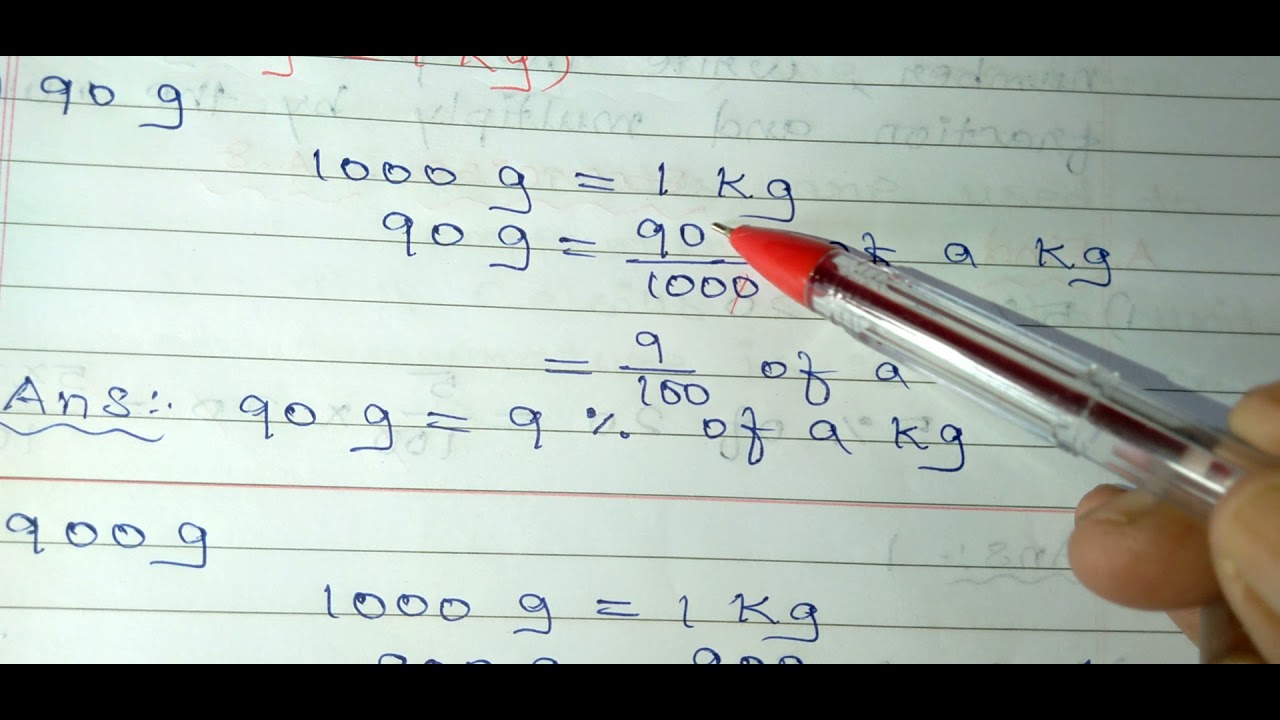 Kg)
90 g
1000 g = 1 Kg
90 g = 90/1000 of a kg
= 9/100 of a
Ans:. 90 g = 9 % of a kg
900 g
1000 g = 1 Kg
900 g 900